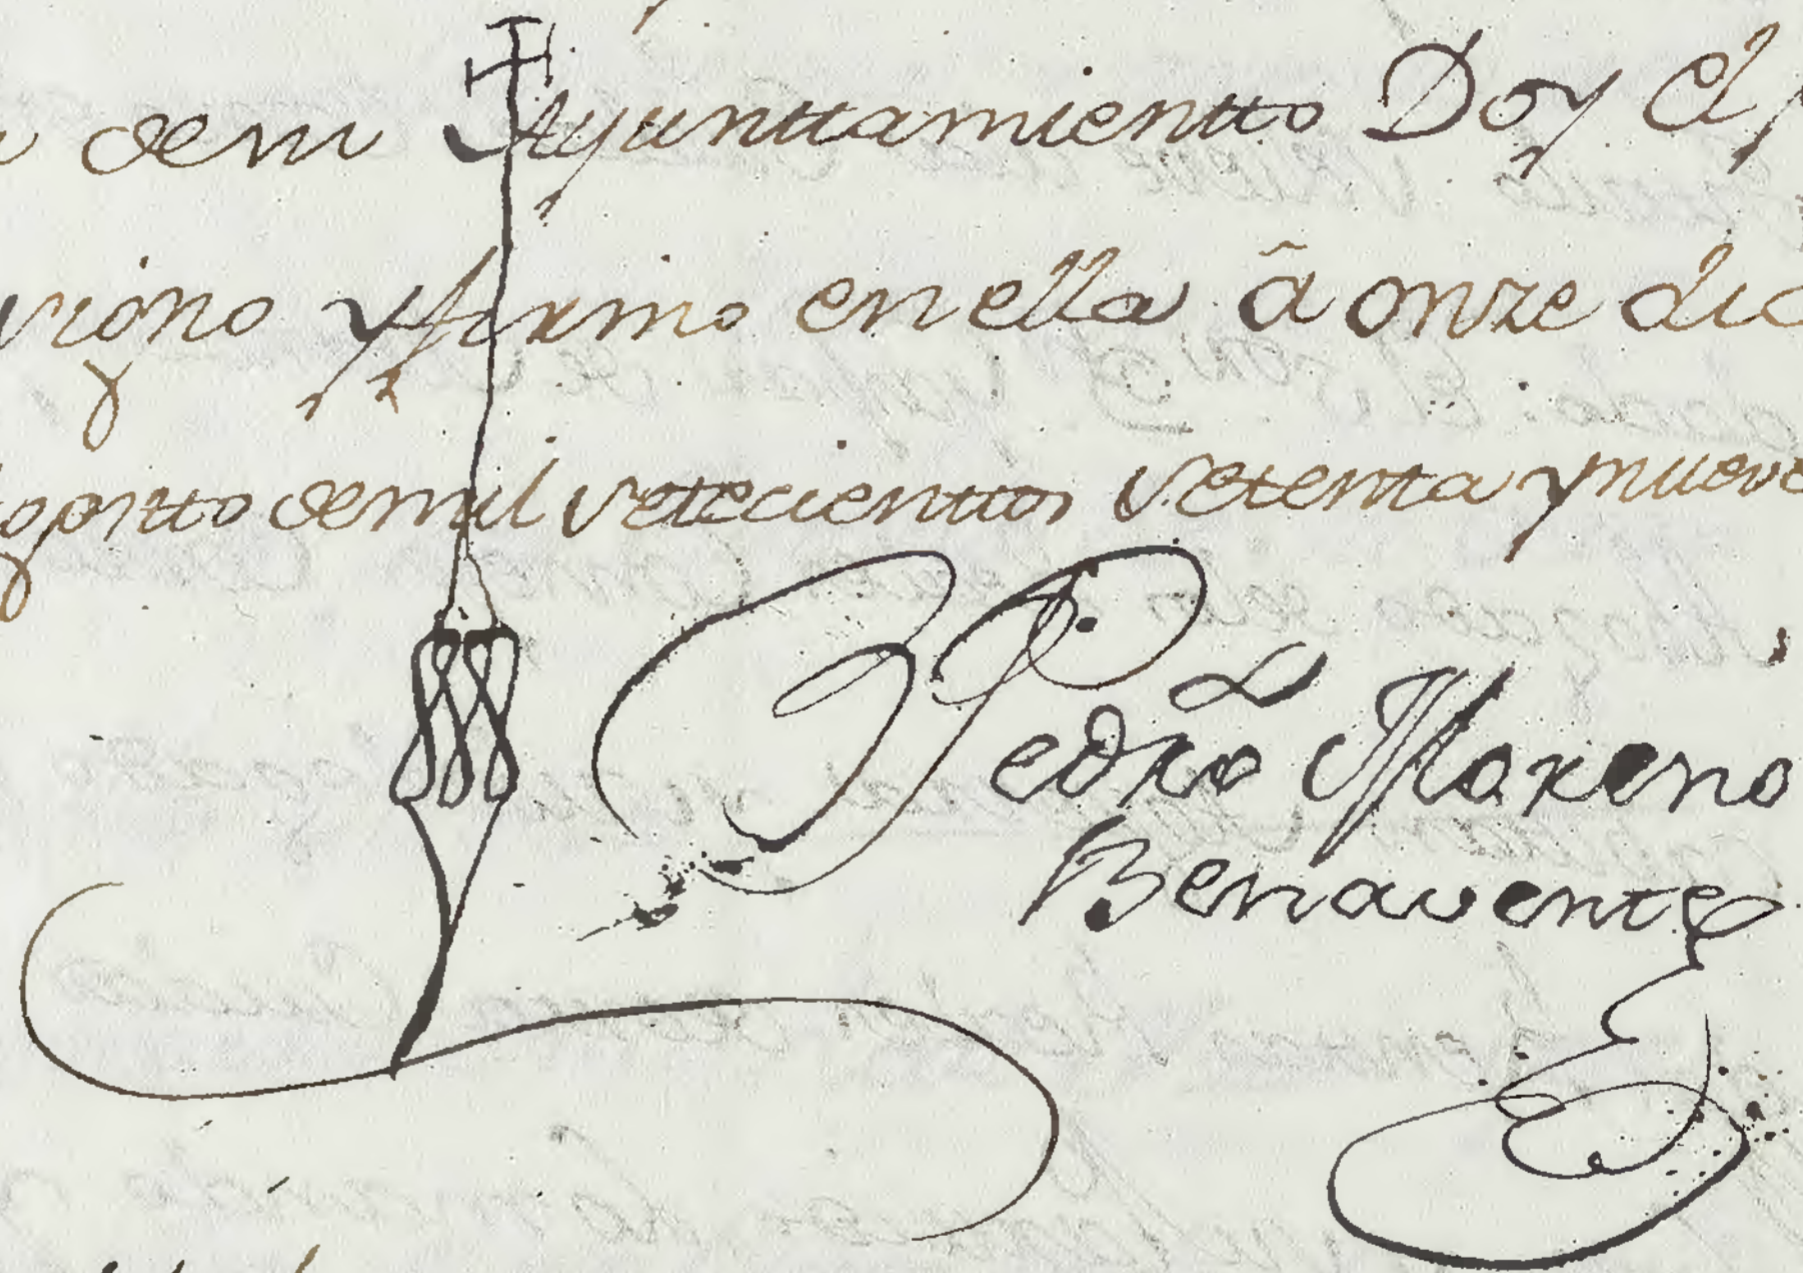 demi Ayunttamientto Doy el
signo y firmo en ella â onze dia
Agostto de mil settecienttos settenta y nueve
Pedro Moreno
Benavente